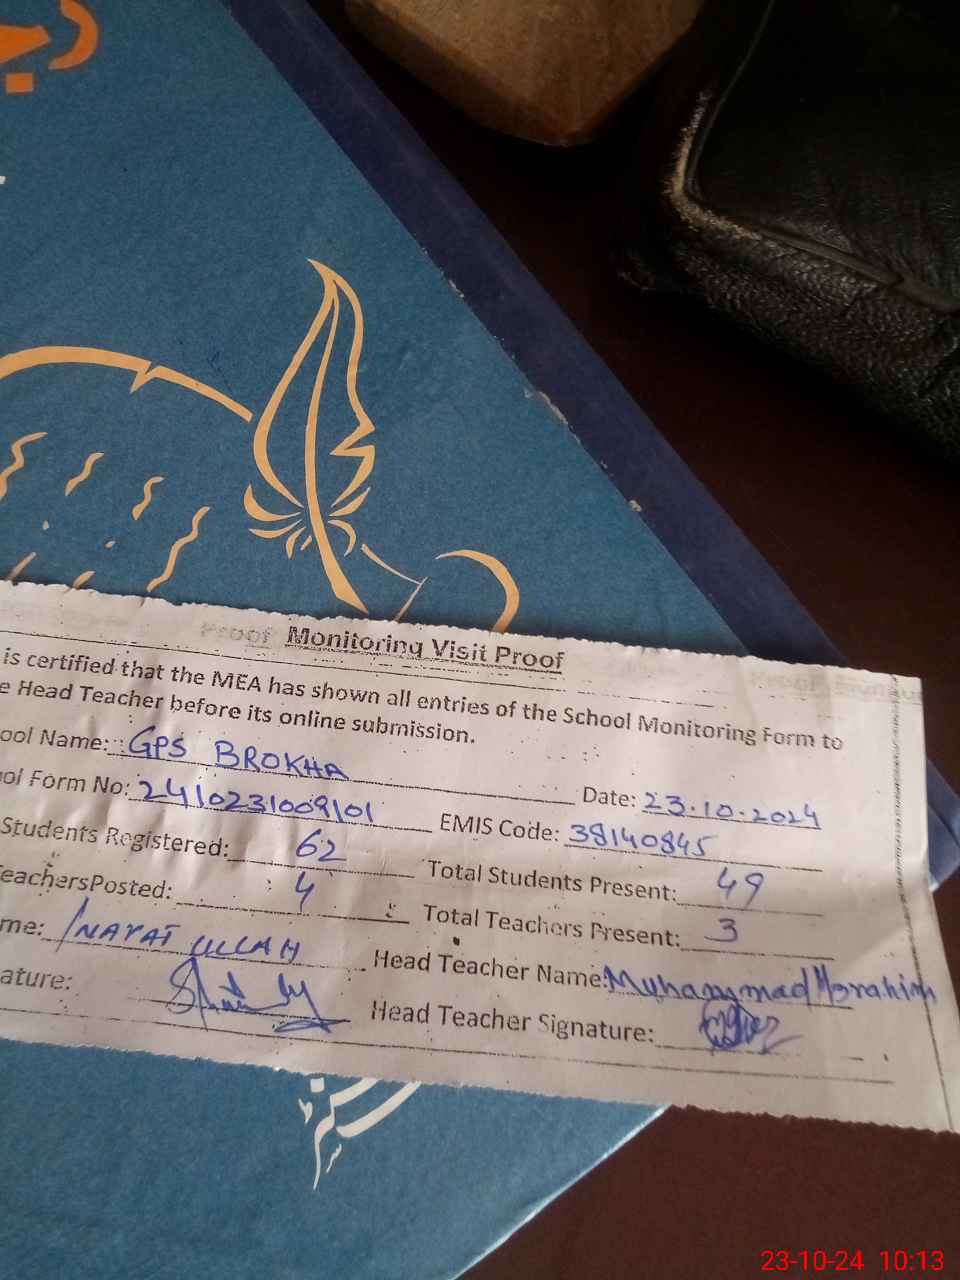 Monitoring Visit Proof
is certified that the MEA has shown all entries of the School Monitoring Form to
e Head Teacher before its online submission.
ool Name: GPS BROKHA Date: 23.10.2024
ol Form No: 2410231009101 EMIS Code: 38140845
Students Registered: 62 Total Students Present: 49
eachersPosted: 4 Total Teachers Present: 3
me: INAYAT ULLAH Head Teacher Name: Muhammad Ibrahim
ature: Head Teacher Signature:
23-10-24 10:13